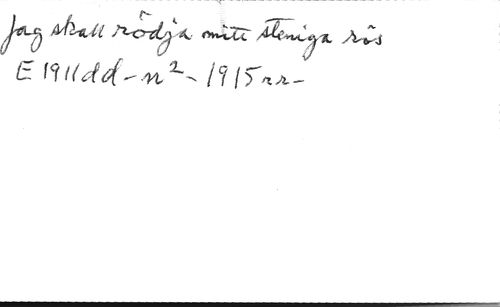 Jag skall rödja mitt steniga rös
E 1911dd-n²-1915rr-